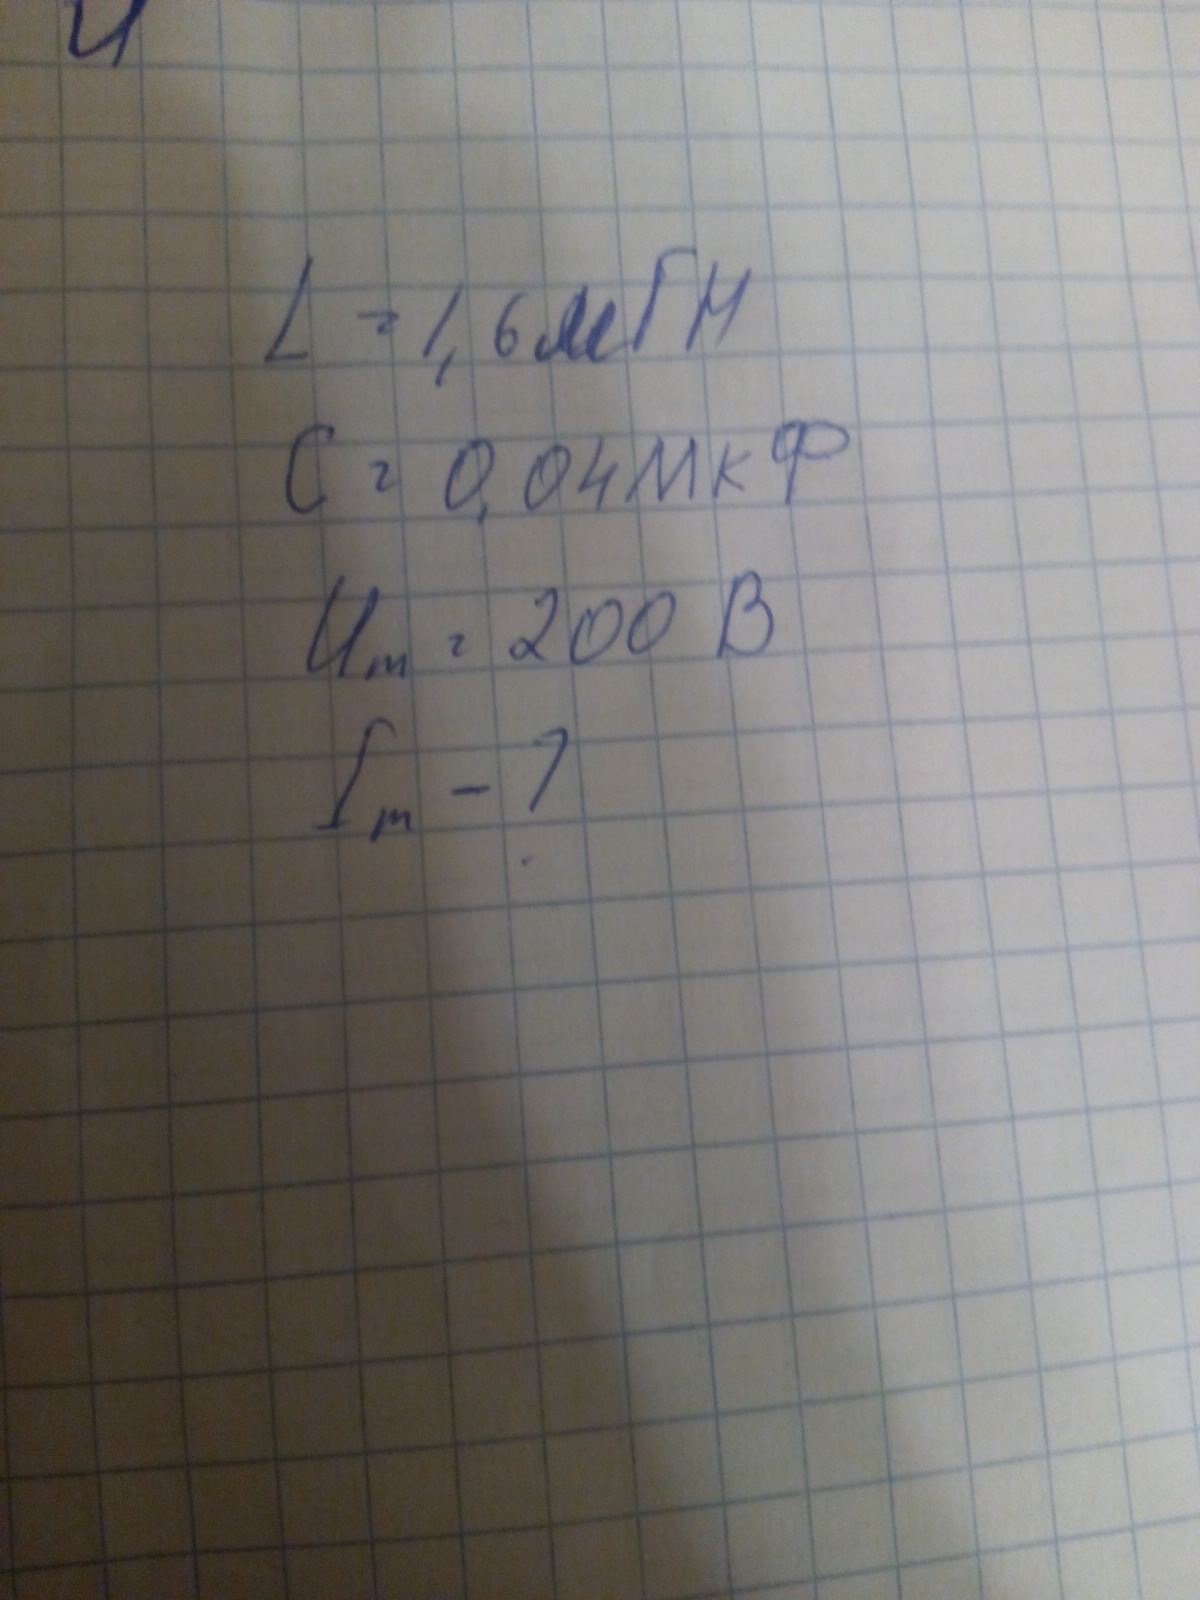 L = 1,6 мГн
C = 0,04 мкФ
Um = 200 В
Im - ?